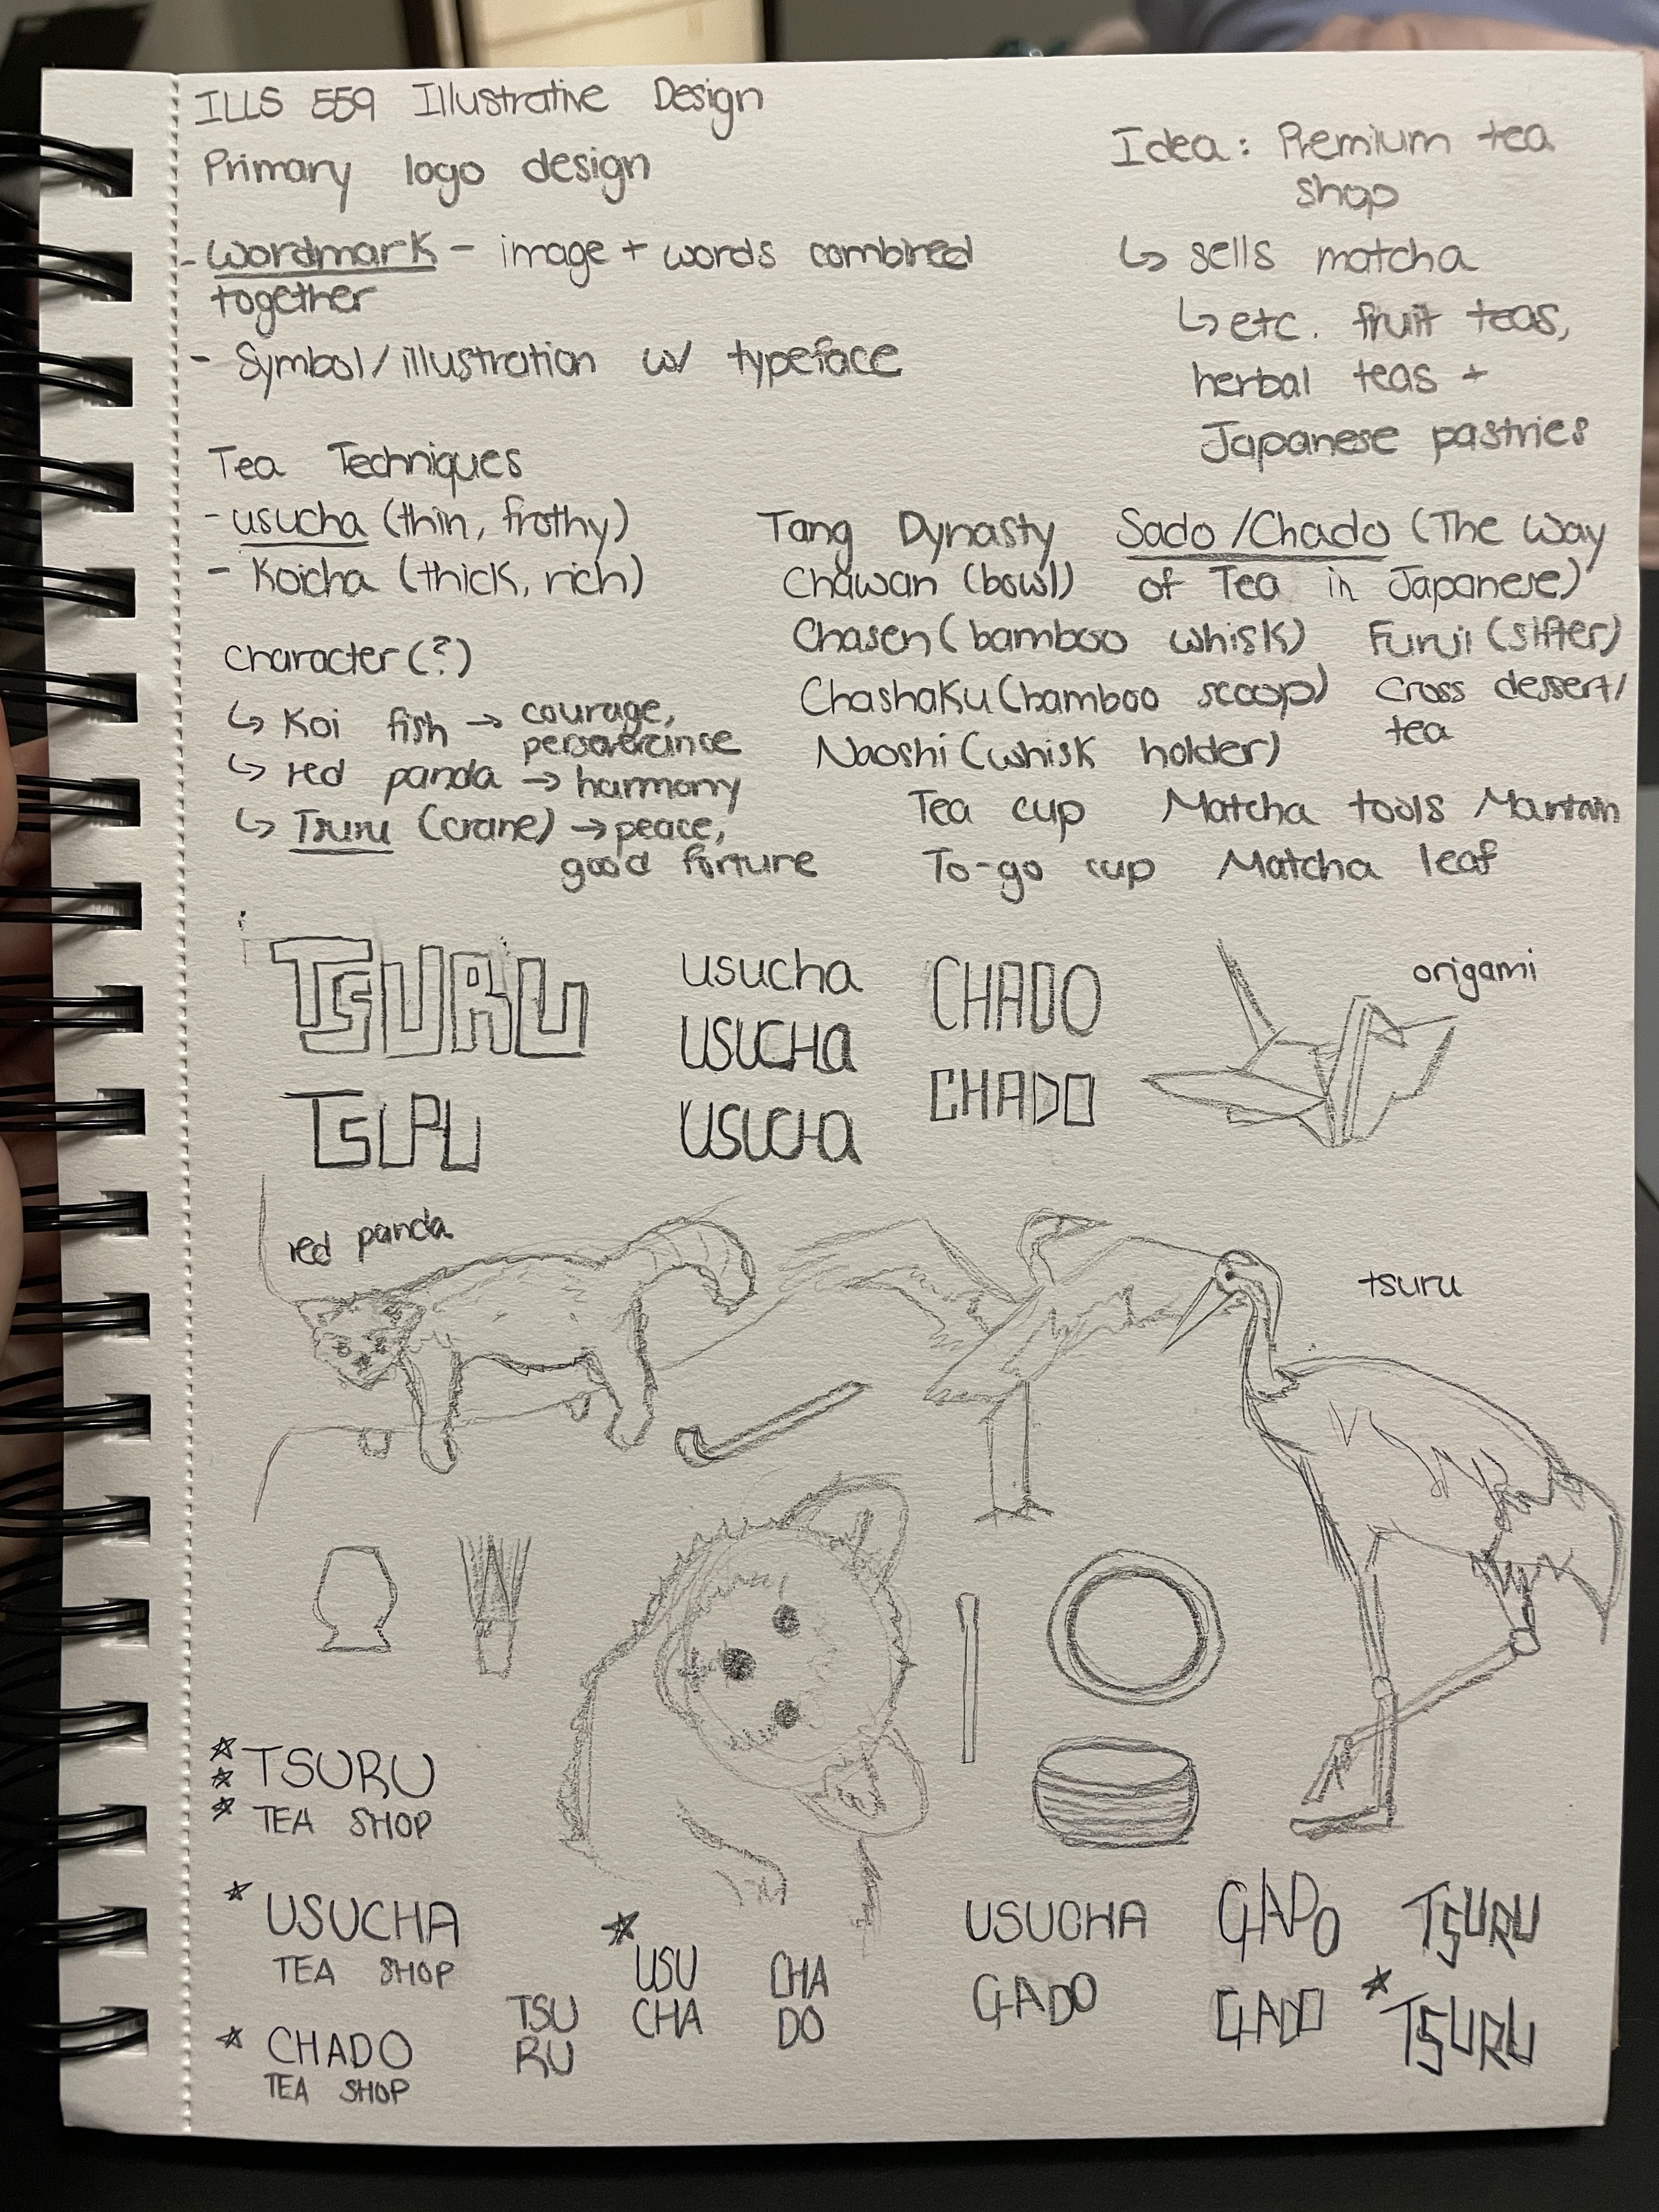 ILLS 559 Illustrative Design
Primary logo design
- Wordmark - image + words combined
together
- Symbol/illustration w/ typeface
Idea: Premium tea
shop
↳ sells matcha
↳ etc. fruit teas,
herbal teas +
Japanese pastries
Tea Techniques
- usucha (thin, frothy)
- Koicha (thick, rich)
Character(?)
↳ Koi fish → courage,
perseverance
↳ red panda → harmony
↳ Tsuru (crane) → peace,
good fortune
Tang Dynasty
Chawan (bowl)
Chasen (bamboo whisk)
Chashaku (bamboo scoop)
Naoshi (whisk holder)
Sado/Chado (The Way
of Tea in Japanese)
Furui (sifter)
Cross dessert/
tea
Tea cup Matcha tools
To-go cup Matcha leaf
TSURU
TSURU
usucha
USUCHa
USUCHa
CHADO
CHADO
origami
red panda
tsuru
TSURU
TEA SHOP
USUCHA
TEA SHOP
CHADO
TEA SHOP
TSU
RU
USU
CHA
CHA
DO
USUCHA
TSURU
TSURU